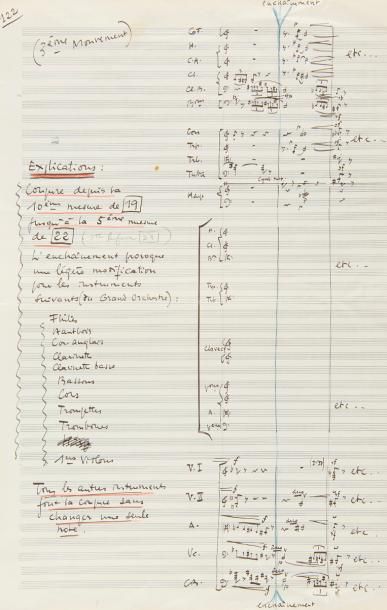 122
enchaînement
(3ème Mouvement)
etc...
Explications :
Coupure depuis la
10ème mesure de 19
jusqu'à la 5ème mesure
de 22
L'enchaînement provoque
une légère modification
pour les instruments
suivants (du Grand Orchestre) :
Flûtes
Hautbois
Cor anglais
Clarinette
Clarinette basse
Bassons
Cors
Trompettes
Trombones
1ers Violons
Tous les autres instruments
font la coupure sans
changer une seule
note.
H.
C.A.
Cl.
Cl. B.
Cors
Trp.
Trb.
Tuba
Harpe
etc...
H.
Cl.
Bon
Trp.
Trb.
etc...
A.
etc...
V. I
etc...
V. II
etc...
A.
etc...
Vc.
etc...
Cb.
etc...
enchaînement